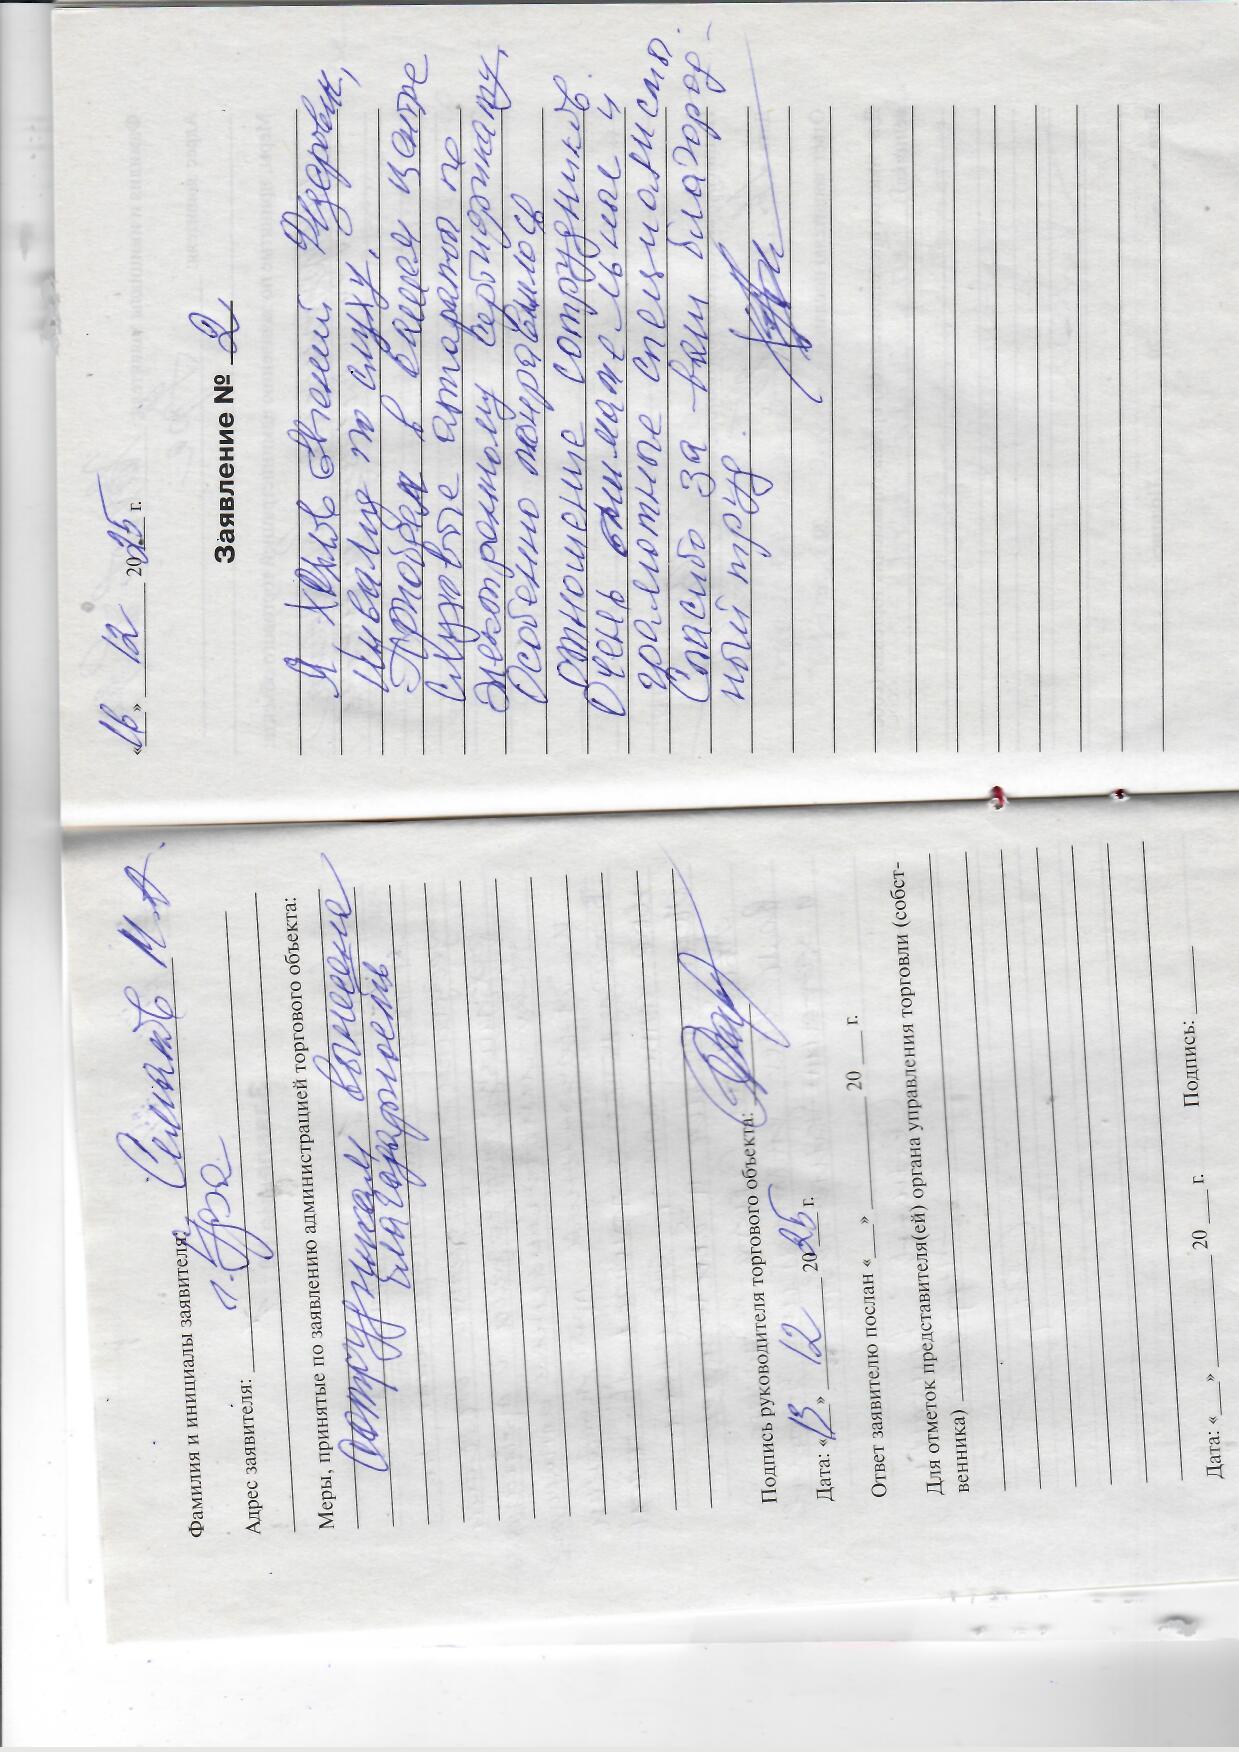 Фамилия и инициалы заявителя: М.А.
Адрес заявителя: г.
Меры, принятые по заявлению администрацией торгового объекта:
Сотрудникам вынесена
благодарность
Подпись руководителя торгового объекта:
Дата: «13» 12 2025 г.
Ответ заявителю послан «___» ________ 20 ___ г.
Для отметок представителя(ей) органа управления торговли (собст-
венника)
Дата: «___» ________ 20 ___ г. Подпись: ______
«16» 12 2025 г.
Заявление № 2
Я Евгений
Инвалид по слуху.
Приобрел в вашем центре
слуховые аппараты по
электронному сертификату.
Особенно понравилось
отношение сотрудников.
Очень внимательные и
грамотные специалисты.
Спасибо за ваш благород-
ный труд.